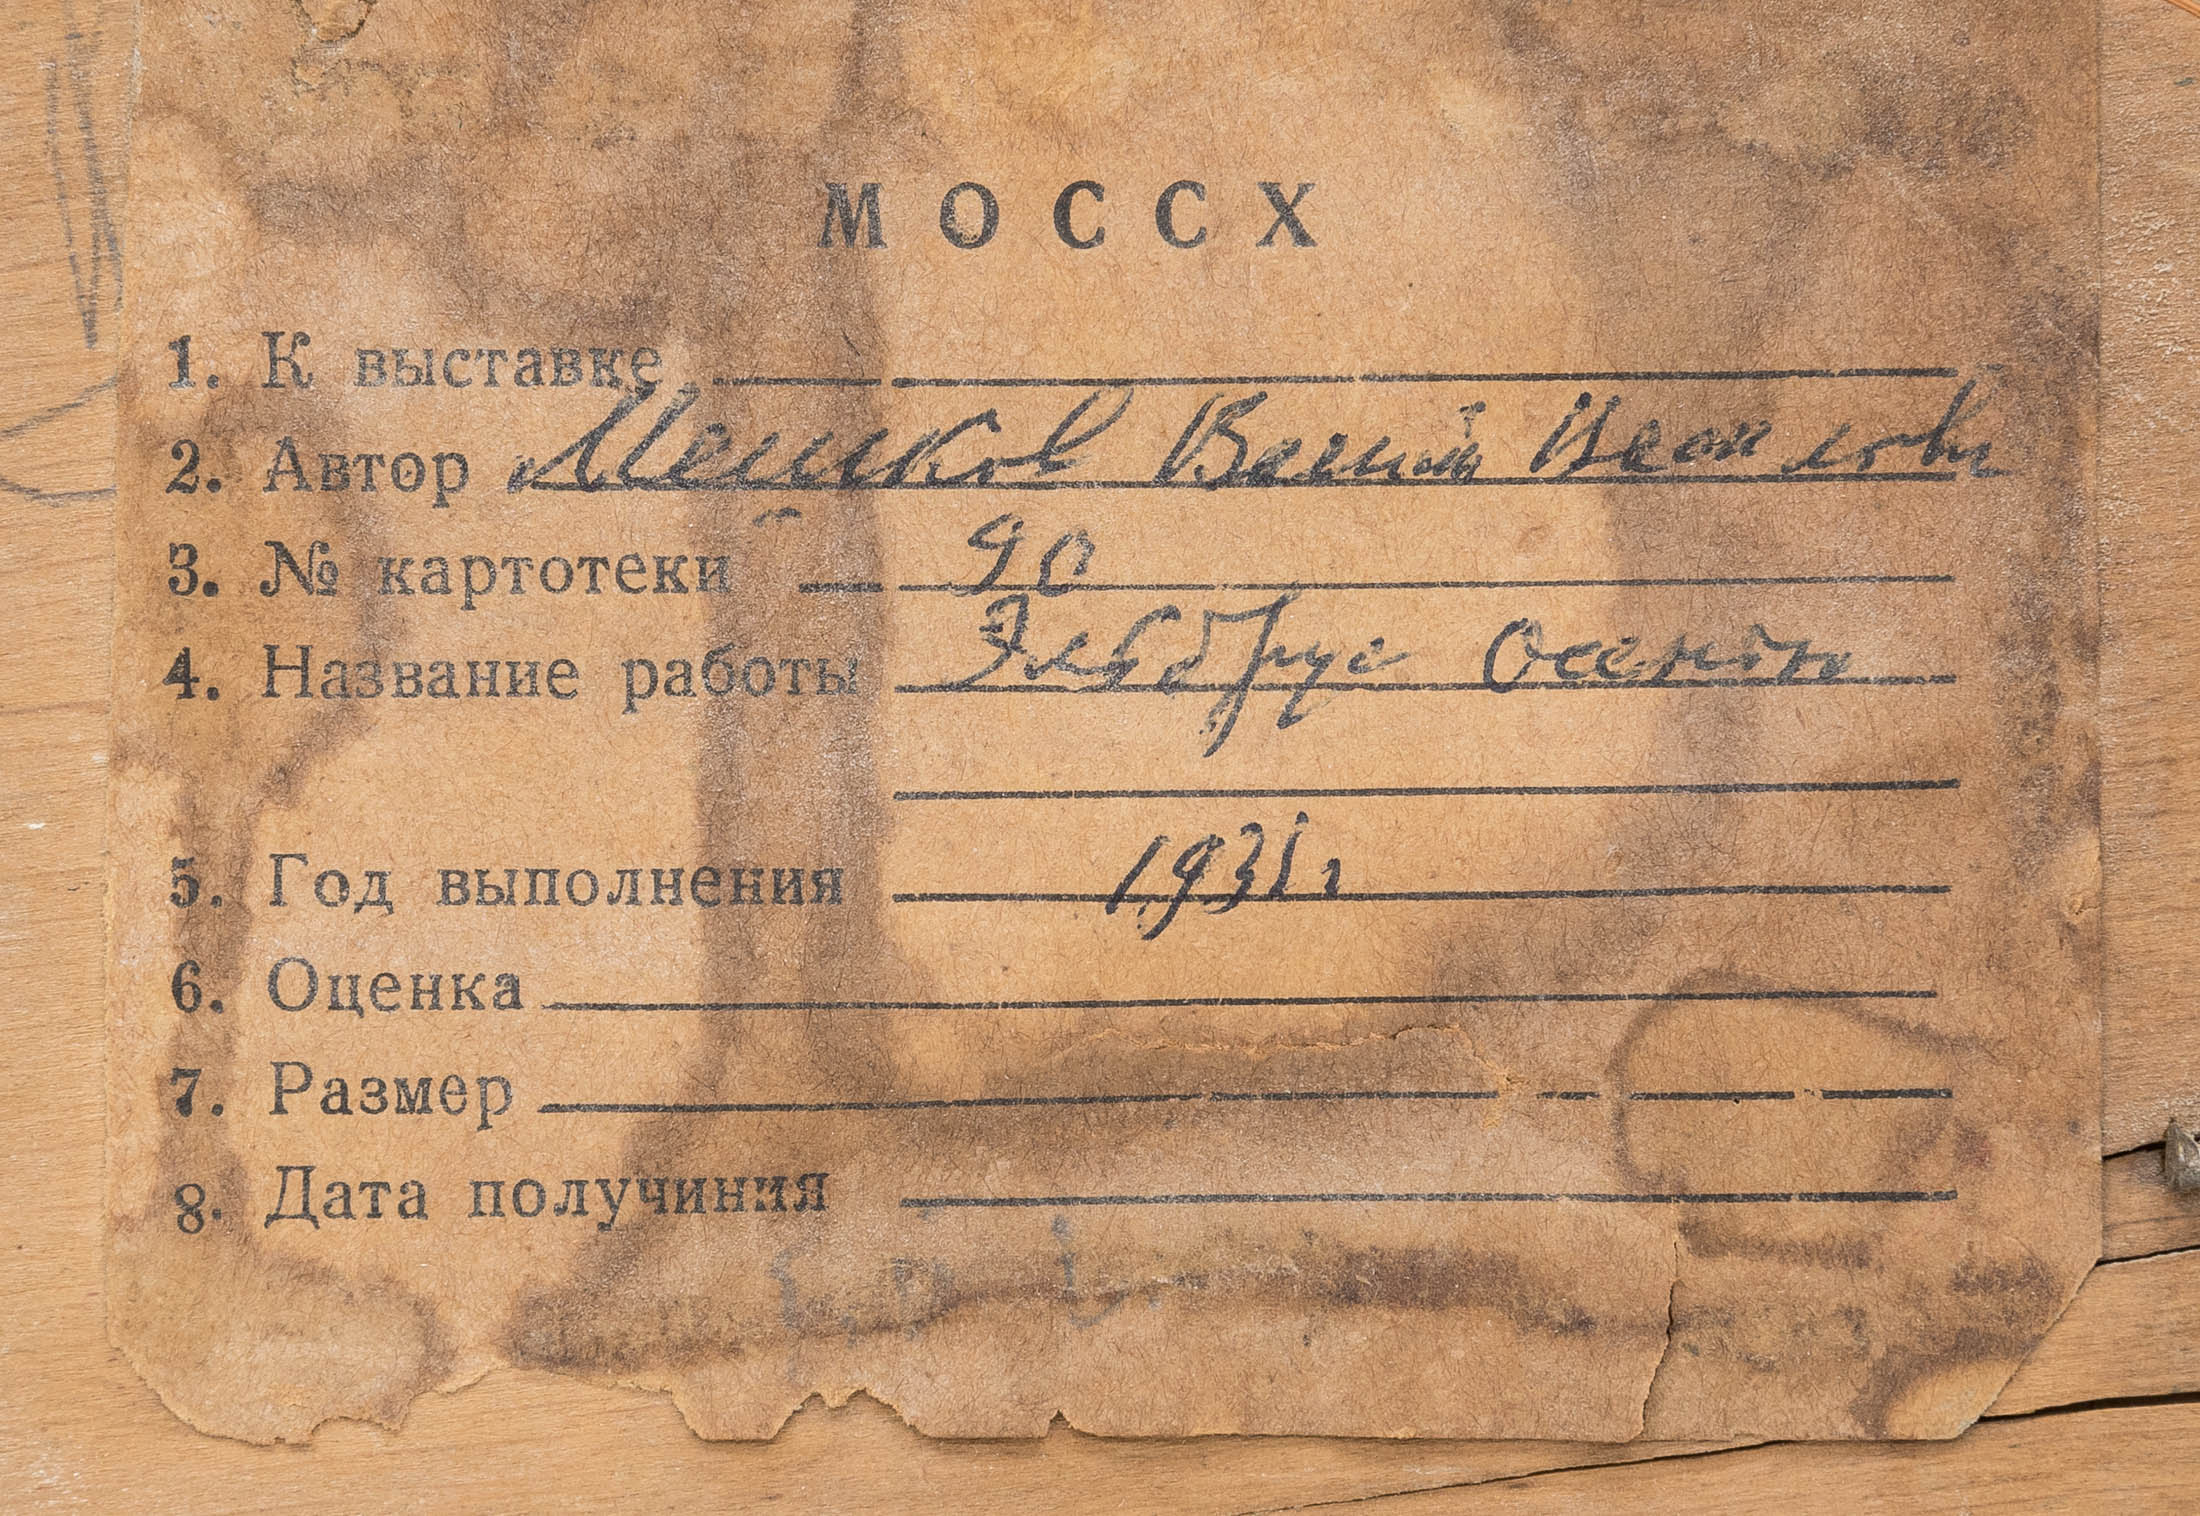 МОССХ
1. К выставке
2. Автор Мешков Василий
3. № картотеки 90
4. Название работы Эльбрус Осенью
5. Год выполнения 1931 г
6. Оценка
7. Размер
8. Дата получиния